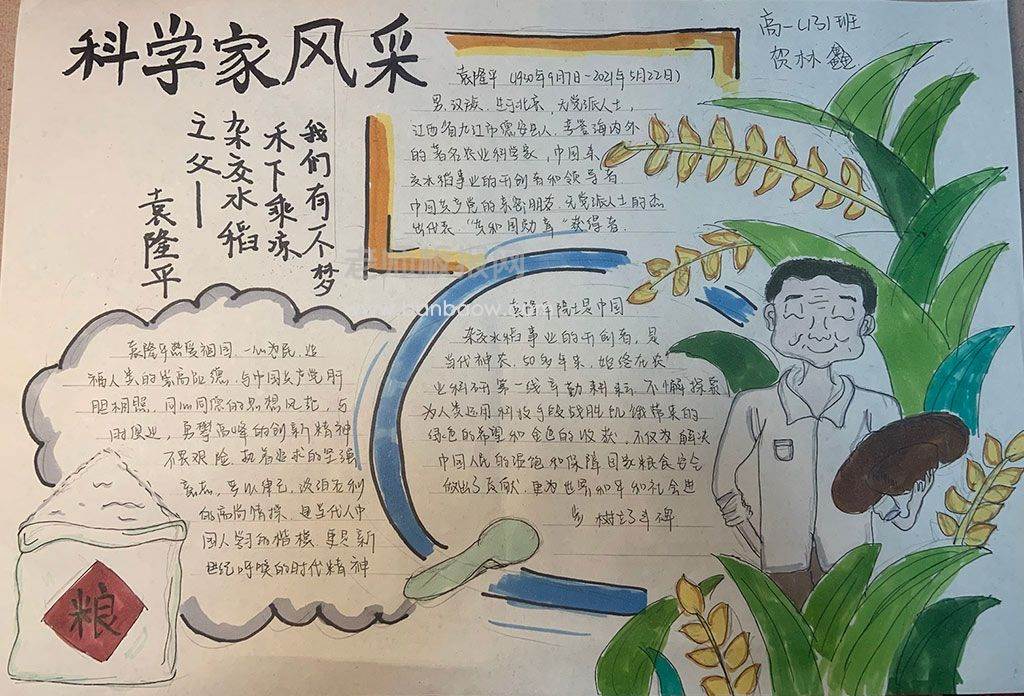 科学家风采
高一(13)班
贺林鑫
我们有一个梦
禾下乘凉
杂交水稻
之父——
袁隆平
袁隆平(1930年9月7日-2021年5月22日)
男,汉族,生于北京,无党派人士,
江西省九江市德安县人,享誉海内外
的著名农业科学家,中国杂
交水稻事业的开创者和领导者
中国共产党的亲密朋友,无党派人士的杰
出代表,“共和国勋章”获得者.
袁隆平院士是中国
杂交水稻事业的开创者,是
当代神农.50多年来,始终在农
业科研第一线辛勤耕耘,不懈探索
为人类运用科技手段战胜饥饿带来的
绿色的希望和金色的收获,不仅为解决
中国人民的温饱和保障国家粮食安全
做出了贡献,更为世界和平和社会进
步树立了丰碑
袁隆平热爱祖国、一心为民、造
福人类的崇高品德,与中国共产党肝
胆相照、同心同德的思想风范,与
时俱进,勇攀高峰的创新精神
不畏艰险、执着追求的坚强
意志,严以律己,淡泊名利
的高尚情操,是当代人中
国人学习的楷模,更是新
世纪呼唤的时代精神
粮
老师板报网
www.banbaow.com